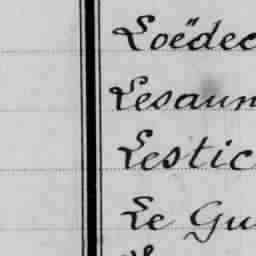 Loëdec
Lesaun
Lestic
Le Gu